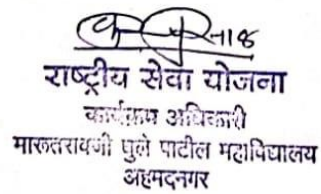 राष्ट्रीय सेवा योजना
कार्यक्रम अधिकारी
मारुतरावजी घुले पाटील महाविद्यालय
अहमदनगर